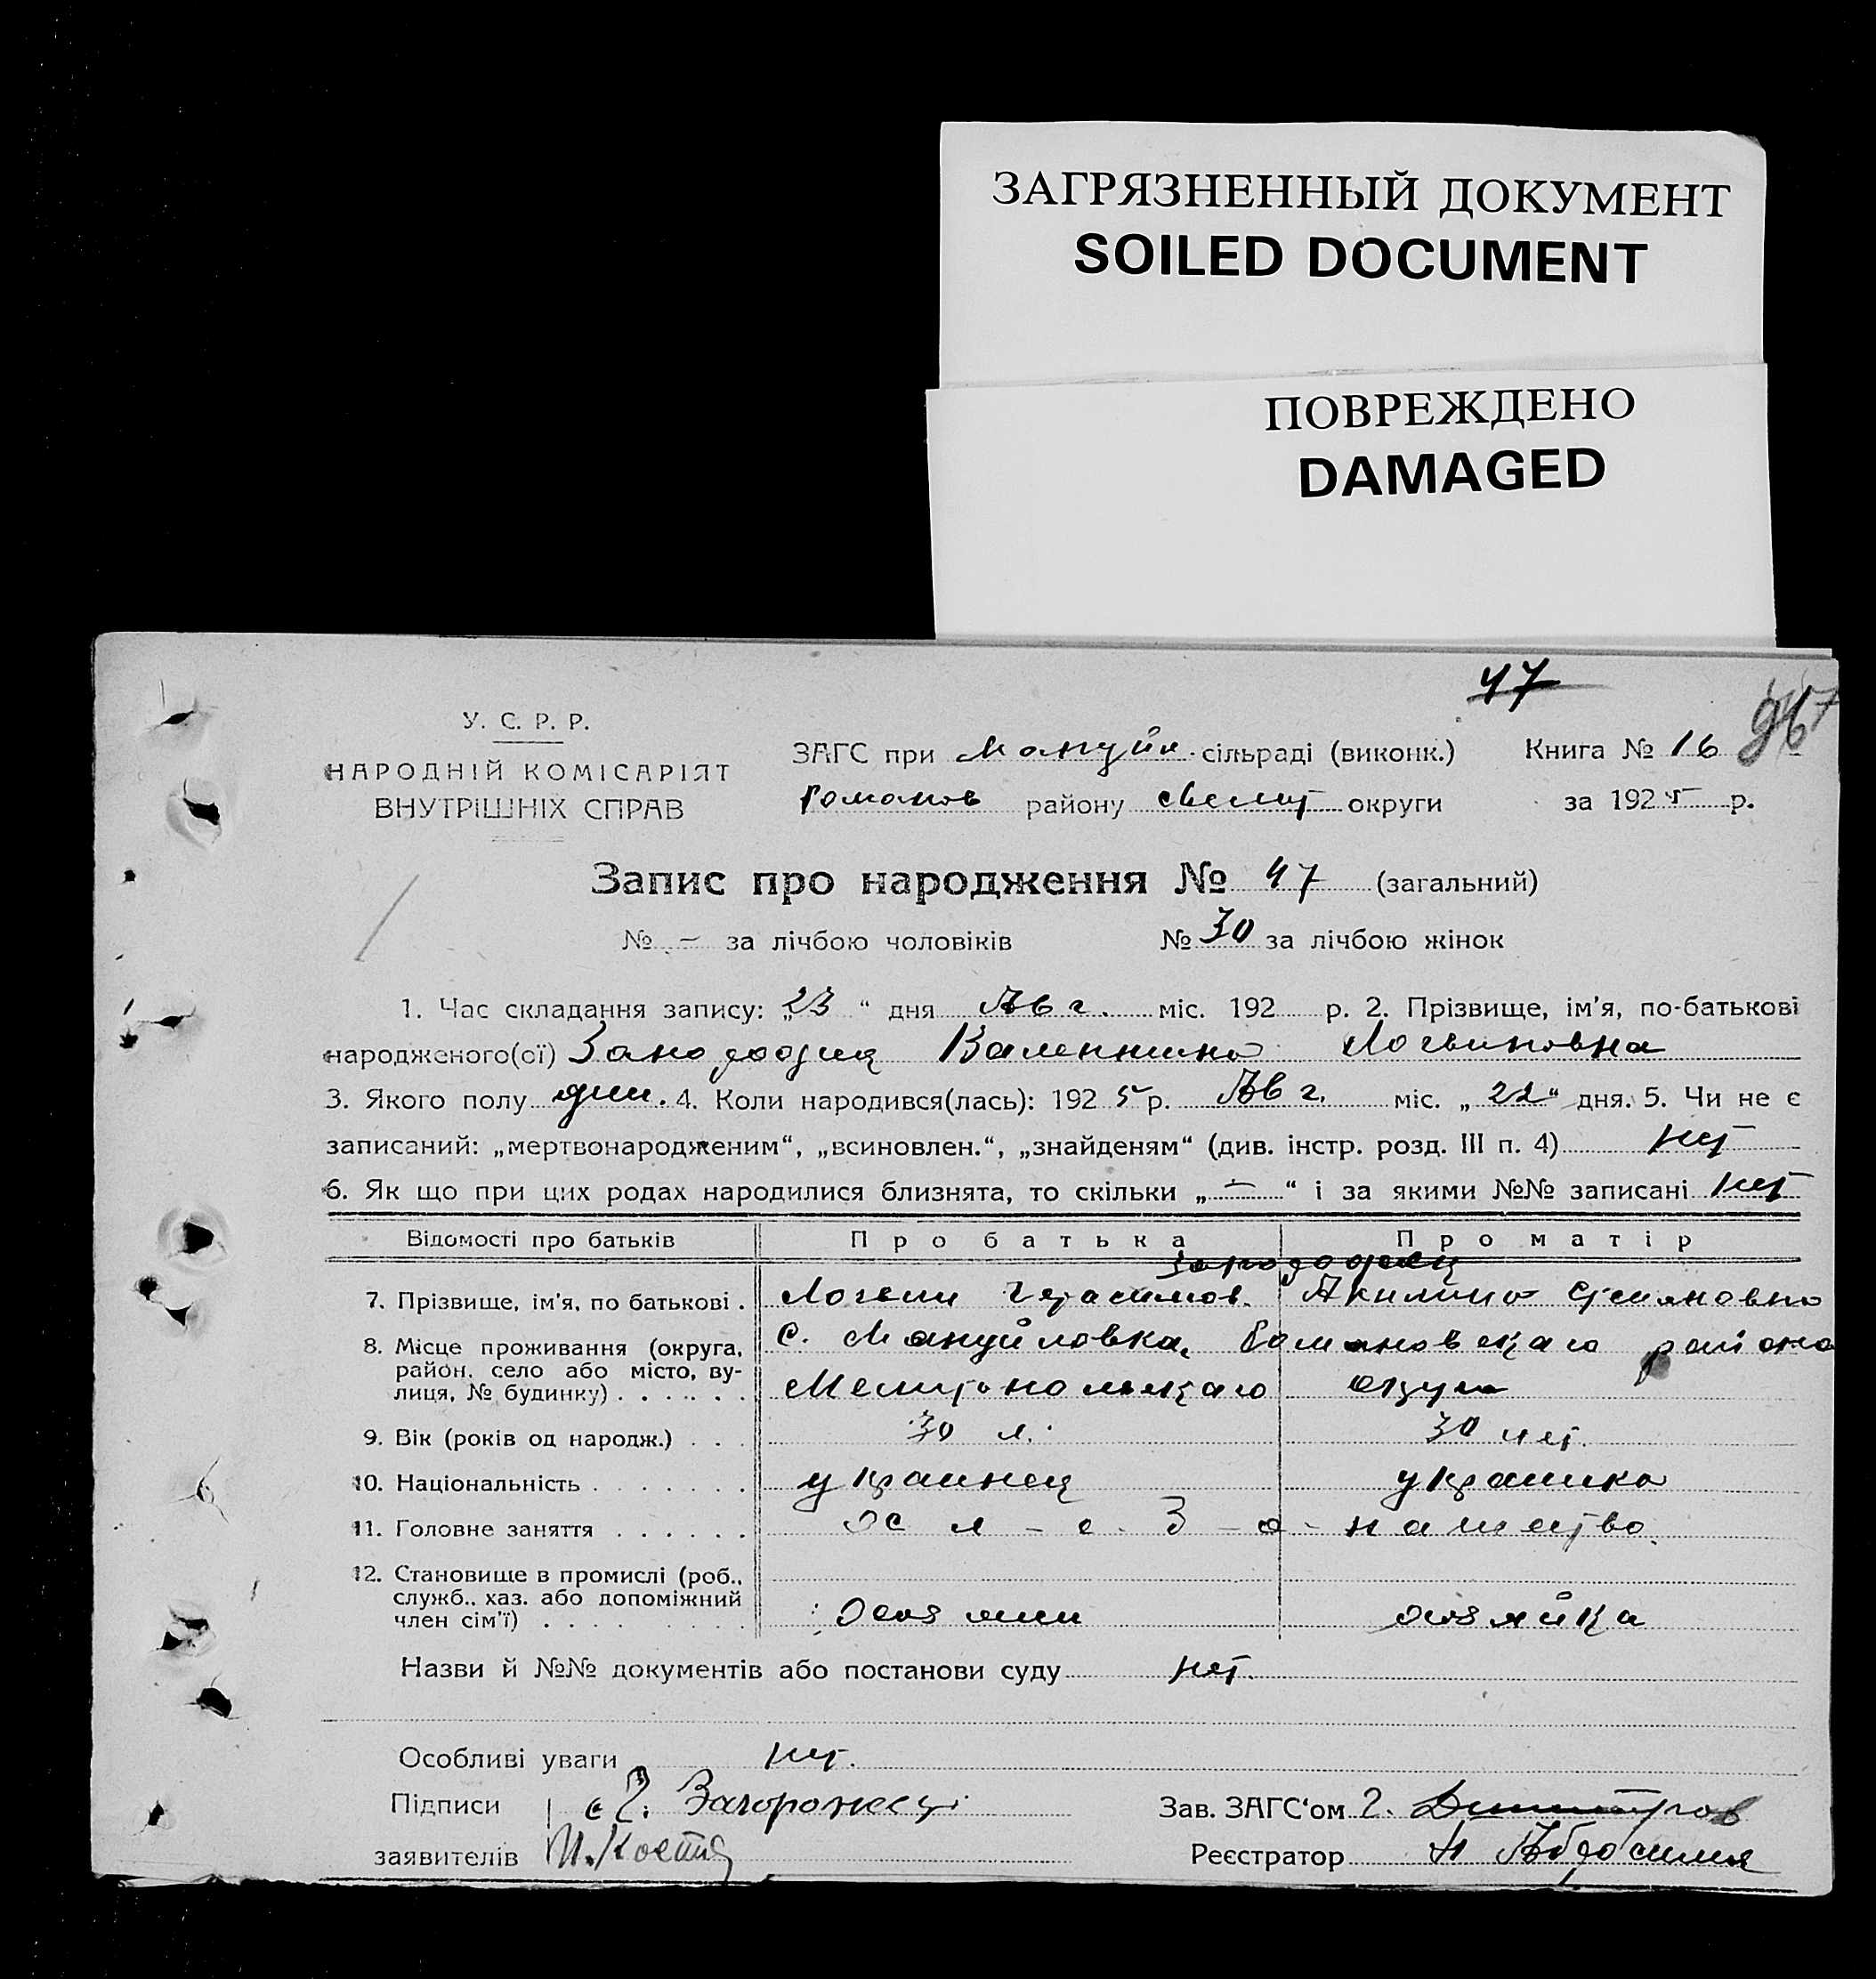 ЗАГРЯЗНЕННЫЙ ДОКУМЕНТ
SOILED DOCUMENT
ПОВРЕЖДЕНО
DAMAGED
47
У. С. Р. Р.
НАРОДНІЙ КОМІСАРІЯТ
ВНУТРІШНІХ СПРАВ
ЗАГС при Мануйл. сільраді (виконк.) Книга № 16
Романов району Мелит округи за 1925 р.
Запис про народження № 47 (загальний)
№ – за лічбою чоловіків № 30 за лічбою жінок
1. Час складання запису: „23“ дня Авг. міс. 192 р. 2. Прізвище, ім’я, по-батькові
народженого(ої) Валентина Логвиновна
3. Якого полу 4. Коли народився(лась): 1925 р. Авг. міс. „22“ дня. 5. Чи не є
записаний: „мертвонародженим“, „всиновлен.“, „знайденям“ (див. інстр. розд. III п. 4) нет
6. Як що при цих родах народилися близнята, то скільки „–“ і за якими №№ записані нет
Відомості про батьків Про батька Про матір
7. Прізвище, ім’я, по батькові . Логвин Герасимов. Акилина Степановна
8. Місце проживання (округа, район, село або місто, вулиця, № будинку) . . . . . . с. Мануйловка, Романовскаго района
Мелитопольскаго округа
9. Вік (років од народж.) . . . 30 л. 30 лет.
10. Національність . . . . . . . украинец украинка
11. Головне заняття . . . . . .
12. Становище в промислі (роб., служб., хаз. або допоміжний член сім’ї) . . . . . . . . хозяин хозяйка
Назви й №№ документів або постанови суду нет.
Особливі уваги нет.
Підписи
заявителів
Зав. ЗАГС‘ом Г. Димитров
Реєстратор